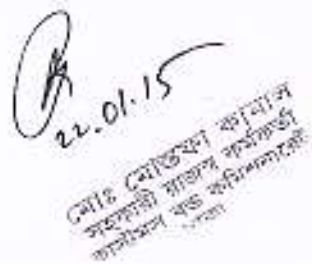 22.01.15
মোঃ মোস্তফা কামাল
সহকারী রাজস্ব কর্মকর্তা
কাস্টমস বন্ড কমিশনারেট
ঢাকা